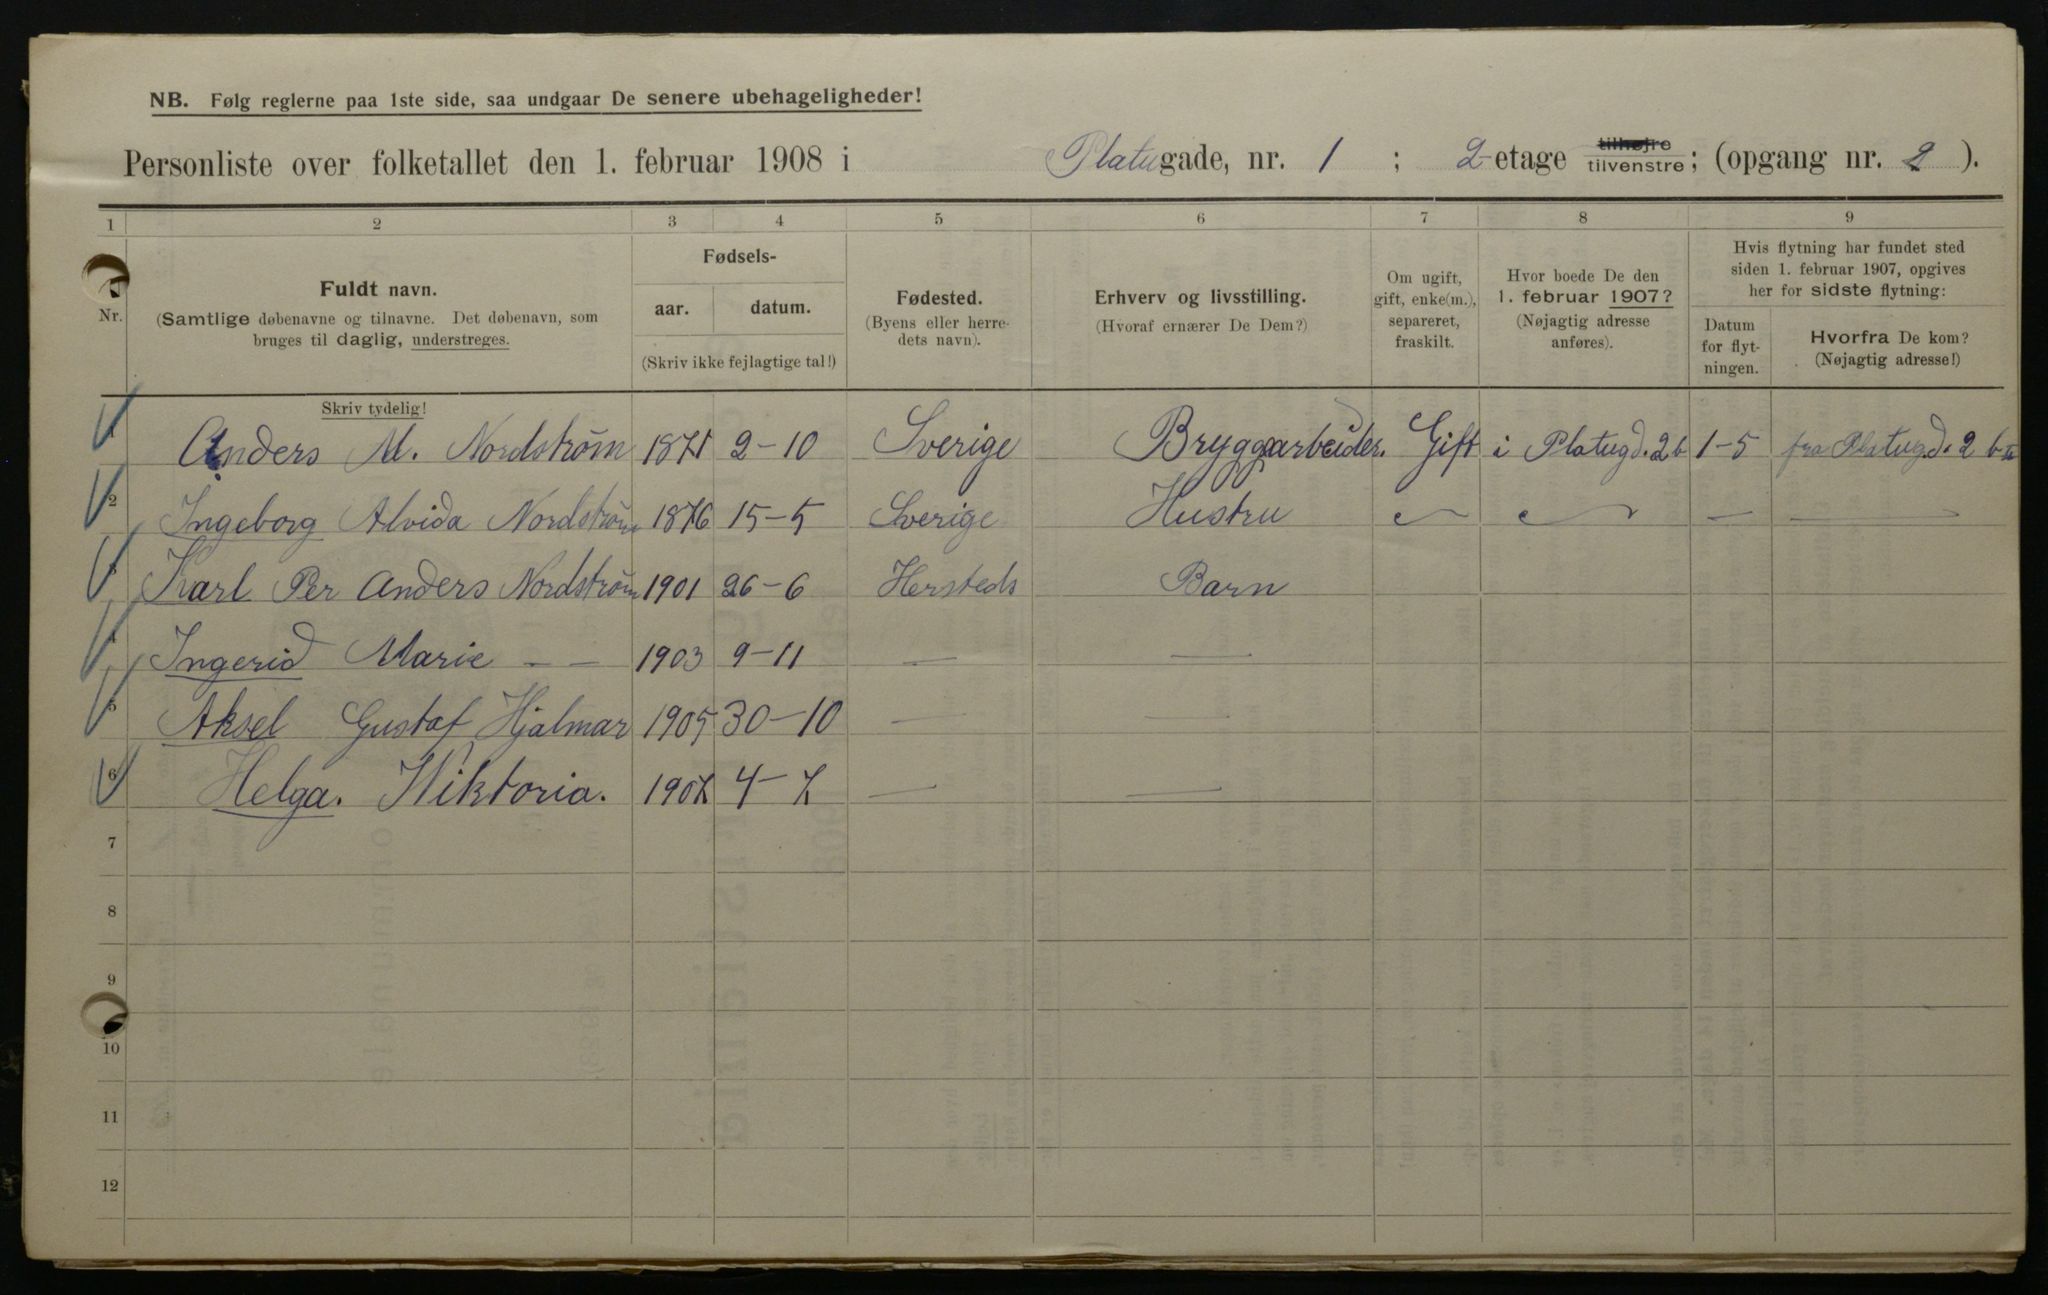 NB. Følg reglerne paa 1ste side, saa undgaar De senere ubehageligheder!
Personliste over folketallet den 1. februar 1908 i Platugade, nr. 1 ; 2-etage tilhøjre tilvenstre; (opgang nr. 2 ).
1 2 3 4 5 6 7 8 9
Nr.
Fuldt navn.
(Samtlige døbenavne og tilnavne. Det døbenavn, som
bruges til daglig, understreges.
Skriv tydelig!
Fødsels-
aar. datum.
(Skriv ikke fejlagtige tal!)
Fødested.
(Byens eller herre-
dets navn).
Erhverv og livsstilling.
(Hvoraf ernærer De Dem?)
Om ugift,
gift, enke(m.),
separeret,
fraskilt.
Hvor boede De den
1. februar 1907?
(Nøjagtig adresse
anføres).
Hvis flytning har fundet sted
siden 1. februar 1907, opgives
her for sidste flytning:
Datum
for flyt-
ningen.
Hvorfra De kom?
(Nøjagtig adresse!)
1 Anders M. Nordstrøm 1871 2-10 Sverige Bryggarbeider. Gift i Platugd. 2b 1-5 fra Platugd. 2 b II
2 Ingeborg Alvida Nordstrøm 1876 15-5 Sverige Hustru — — — —
3 Karl Per Anders Nordstrøm 1901 26-6 Hersteds Barn
4 Ingerid Marie - - 1903 9-11 — —
5 Aksel Gustaf Hjalmar 1905 30-10 — —
6 Helga. Wiktoria. 1907 4-7 — —
7
8
9
10
11
12